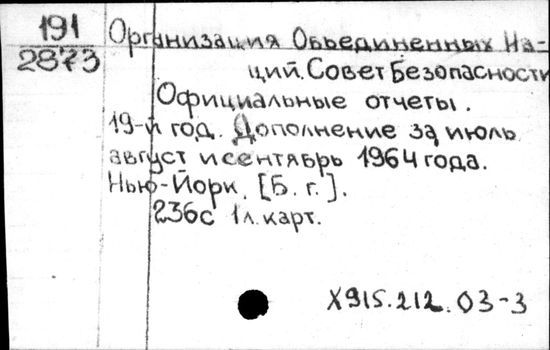 191
2873
Организация Объединенных На-
ций. Совет Безопасности
Официальные отчеты.
19-й год. Дополнение за июль
август и сентябрь 1964 года.
Нью-Йорк, [Б. г.].
236с 1 л. карт.
X915.212.03-3